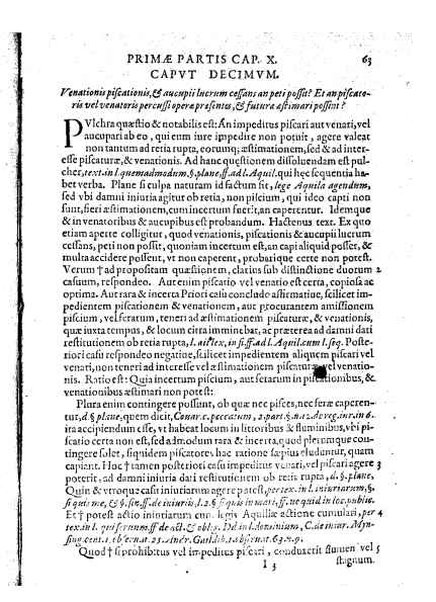 PRIMÆ PARTIS CAP. X. 63
CAPVT DECIMVM.
Venationis piscationis, & aucupii lucrum cessans an peti possit? Et an piscato-
ris vel venatoris percussi operæ præsentes, & futuræ æstimari possint?
PVlchra quæstio & notabilis est: An impeditus piscari aut venari, vel
aucupari ab eo, qui eum iure impedire non potuit, agere valeat
non tantum ad retia rupta, eorumq; æstimationem, sed & ad inter-
esse piscaturæ, & venationis. Ad hanc quęstionem dissoluendam est pul-
cher, text. in l. quemadmodum. §. plane, ff. ad l. Aquil. qui hęc sequentia ha-
bet verba. Plane si culpa nautarum id factum sit, lege Aquila agendum,
sed vbi damni iniuria agitur ob retia, non piscium, qui ideo capti non
sunt, fieri æstimationem, cum incertum fuerit, an caperentur. Idemque
& in venatoribus & aucupibus est probandum. Hactenus text. Ex quo
etiam aperte colligitur, quod venationis, piscationis & aucupii lucrum
cessans, peti non possit, quoniam incertum est, an capi aliquid posset, &
multa accidere possunt, vt non caperent, probarique certe non potest.
Verum † ad propositam quæstionem, clarius sub distinctione duorum 2
casuum, respondeo. Aut enim piscatio vel venatio est certa, copiosa ac
optima. Aut rara & incerta Priori casu concludo affirmatiue, scilicet im-
pedientem piscationem & venationem, aut procurantem amissionem
piscium, vel ferarum, teneri ad æstimationem piscaturæ, & venationis,
quæ iuxta tempus, & locum citra imminebat, ac præterea ad damni dati
restitutionem ob retia rupta, l. ait lex, in fi. ff. ad l. Aquil. cum l. seq. Poste-
riori casu respondeo negatiue, scilicet impedientem aliquem piscari vel
venari, non teneri ad interesse vel æstimationem piscaturæ vel venatio-
nis. Ratio est: Quia incertum piscium, aut ferarum in piscationibus, &
venationibus æstimari non potest:
Plura enim contingere possunt, ob quæ nec pisces, nec feræ caperen-
tur, d. §. plane, quem dicit, Couar. c. peccatum, 2. part. §. n. 2. de reg. iur. in 6.
ita accipiendum esse, vt habeat locum in littoribus & fluminibus, vbi pi-
scatio certa non est, sed admodum rara & incerta, quod plerumque con-
tingere solet, siquidem piscatores hac ratione sæpius eluduntur, quam
capiant. Hoc † tamen posteriori casu impeditus venari, vel piscari agere 3
poterit, ad damni iniuria dati restitutionem ob retia rupta, d. §. plane,
Quin & vtroque casu iniuriarum agere potest, per tex. in l. iniuriarum, §.
si quis me, & §. sin. ff. de iniuriis, l. 2. § si quis in mari, ff. ne quid in loc. public.
Et † potest actio iniuriarum cum legis Aquiliæ actione cumulari, per 4
tex. in l. qui seruum. ff. de act. & oblig. DD. in l. dominium, C. de inur. Myn-
sing. cent. 1. obseruat. 23. Andr. Gail. lib. 1. obseruat. 63. n. 9.
Quod † si prohibitus vel impeditus piscari, conduxit flumen vel 5
I 3 stagnum.